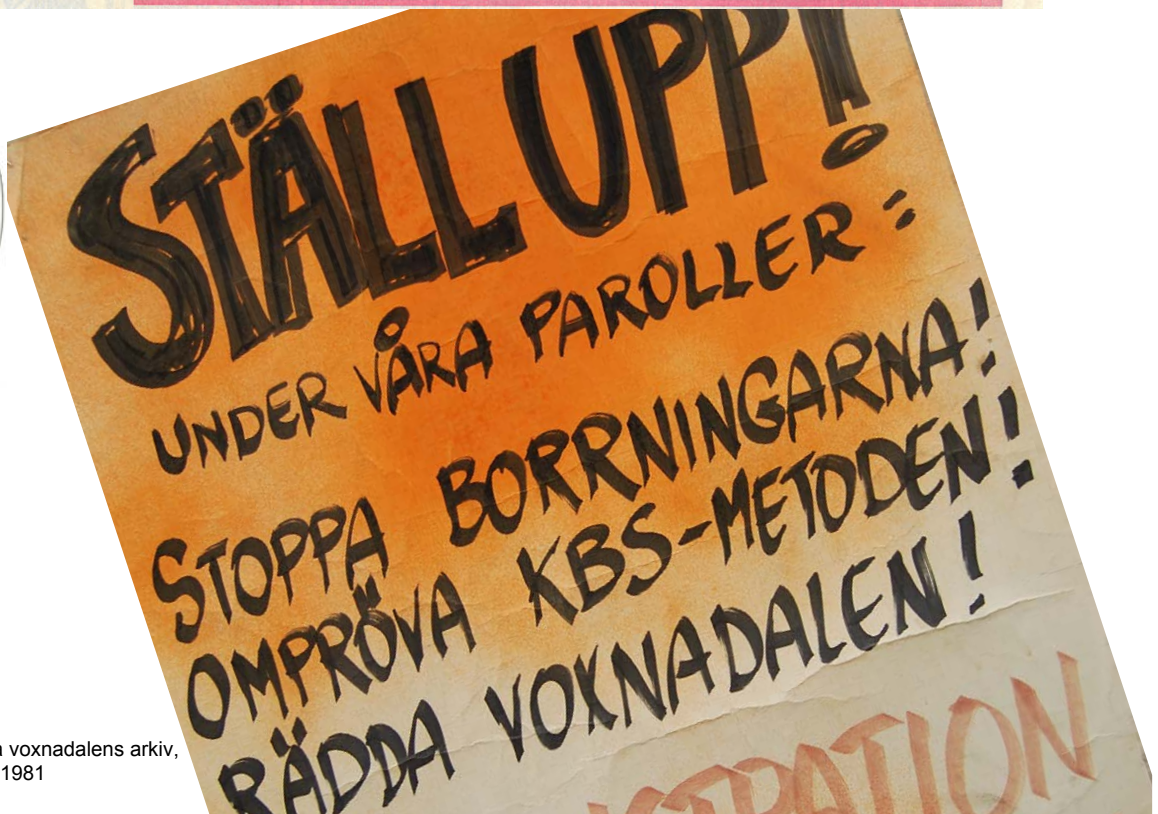 STÄLL UPP!
UNDER VÅRA PAROLLER:
STOPPA BORRNINGARNA!
OMPRÖVA KBS-METODEN!
RÄDDA VOXNADALEN!
voxnadalens arkiv,
1981